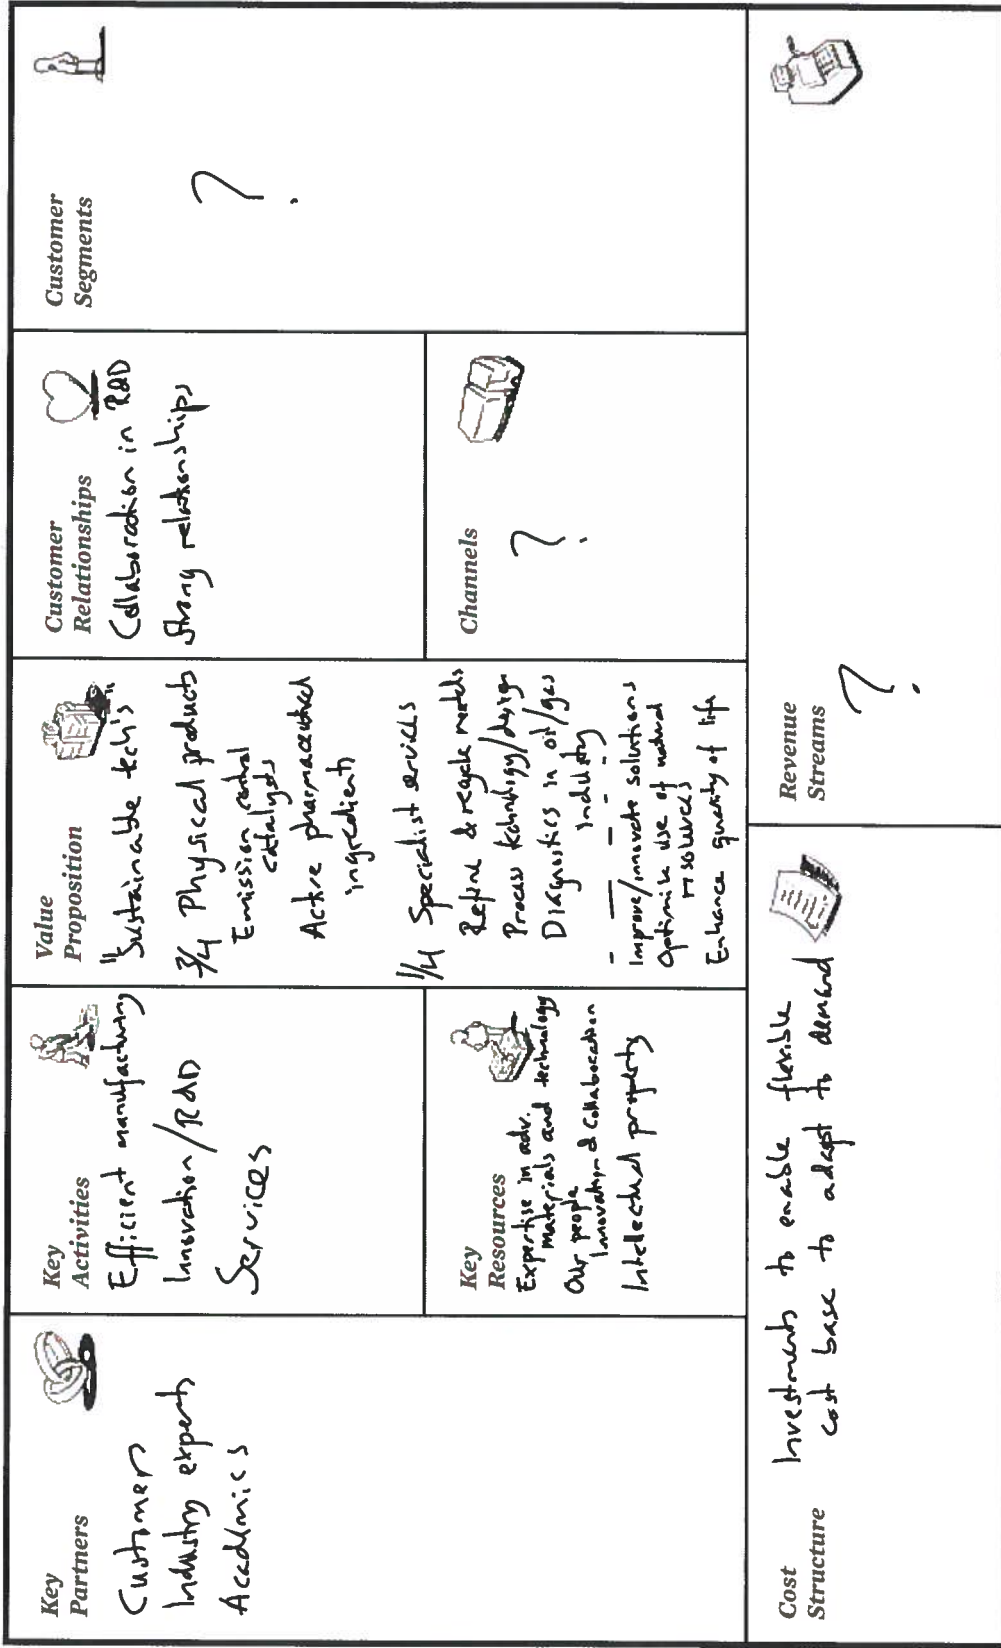 Key
Partners
Customers
Industry experts
Academics
Key
Activities
Efficient manufacturing
Innovation/R&D
Services
Key
Resources
Expertise in adv.
materials and technology
Our people
Innovation & Collaboration
Intelectual property
Value
Proposition
"Sustainable tech's"
3/4 Physical products
Emission control
catalysts
Active pharmaceutical
ingredients
1/4 Specialist services
Refine & recycle metals
Process technology/design
Diagnostics in oil/gas
industry
- — - - -
Improve/innovate solutions
Optimise use of natural
resources
Enhance quality of life
Customer
Relationships
Collaboration in R&D
Strong relationships
Channels
?
Customer
Segments
?
Cost
Structure
Investments to enable flexible
cost base to adapt to demand
Revenue
Streams
?